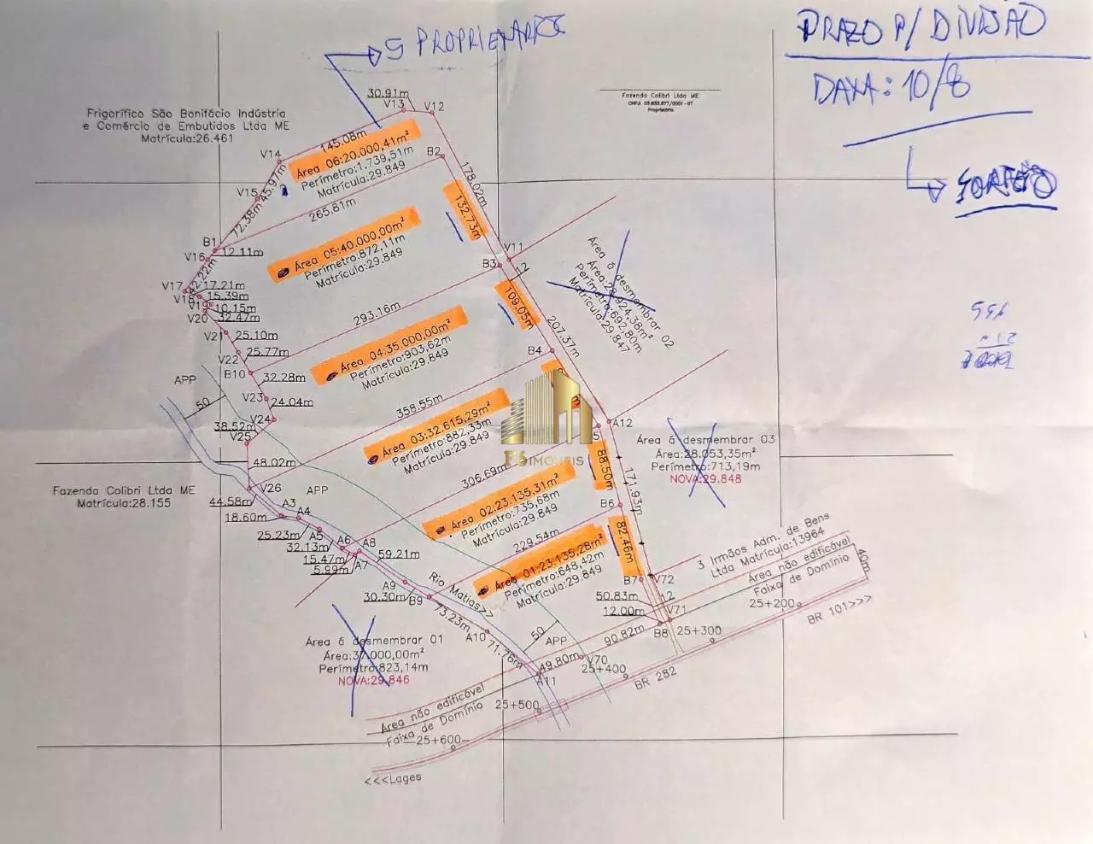 5 PROPRIETÁRIOS
PRAZO P/ DIVISÃO
DATA: 10/8
SORTEIO
Fazenda Colibri Ltda ME
Proprietária
Frigorífico São Bonifácio Indústria
e Comércio de Embutidos Ltda ME
Matrícula:26.461
30.91m
V13
V12
145.08m
V14
Área 06:20.000,41m²
Perímetro:1.739,51m
Matrícula:29.849
B2
178.02m
45.97m
V15
72.38m
265.81m
132.73m
B1
V16
12.11m
Área 05:40.000,00m²
Perímetro:872,11m
Matrícula:29.849
V11
B3
12
V17
17.21m
V18
15.39m
V19
10.15m
V20
32.47m
109.05m
293.16m
207.37m
Área ó desmembrar 02
Perímetro:692,80m
Matrícula:29.847
V21
25.10m
V22
25.77m
Área 04:35.000,00m²
Perímetro:903,62m
Matrícula:29.849
B4
B10
32.28m
APP
50
V23
24.04m
358.55m
V24
38.52m
V25
Área 03:32.615,29m²
Perímetro:882,33m
Matrícula:29.849
A12
Área ó desmembrar 03
Área:28.053,35m²
Perímetro:713,19m
NOVA:29.848
48.02m
306.69m
88.50m
171.93m
Fazenda Colibri Ltda ME
Matrícula:28.155
V26
44.58m
APP
A3
18.60m
A4
Área 02:23.135,31m²
Perímetro:735,68m
Matrícula:29.849
B6
25.23m
A5
32.13m
A6
A8
15.47m
A7
5.99m
59.21m
229.54m
82.46m
Área 01:23.135,28m²
Perímetro:648,42m
Matrícula:29.849
3 Irmãos Adm. de Bens
Ltda Matrícula:13964
Área não edificável
Faixa de Domínio
40m
A9
30.30m
B9
Rio Matias>>
73.23m
B7
V72
50.83m
12
12.00m
V71
25+200
BR 101>>>
A10
71.76m
50
APP
90.82m
B8
25+300
Área ó desmembrar 01
Área:37.000,00m²
Perímetro:823,14m
NOVA:29.846
49.80m
V70
25+400
A11
BR 282
Área não edificável
Faixa de Domínio
25+500
25+600
<<<Lages